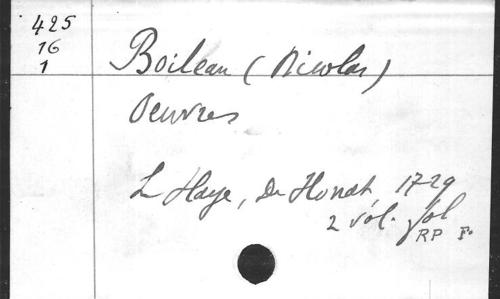 425
16
1
Boileau (Nicolas)
Oeuvres
La Haye, De Hondt 1729
2 vol. fol
RP F.